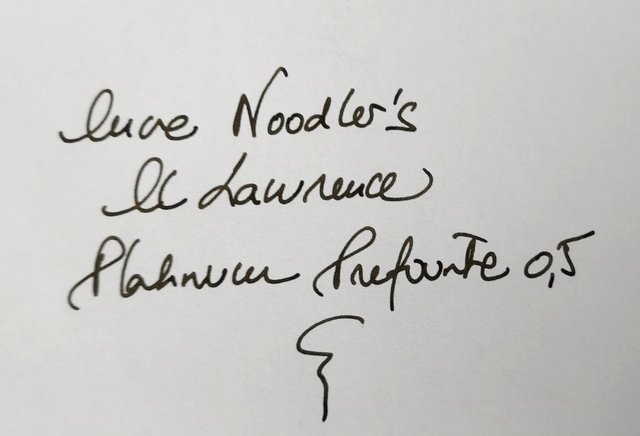 Noodler's
El Lawrence
Platinum Prefounte 0,5